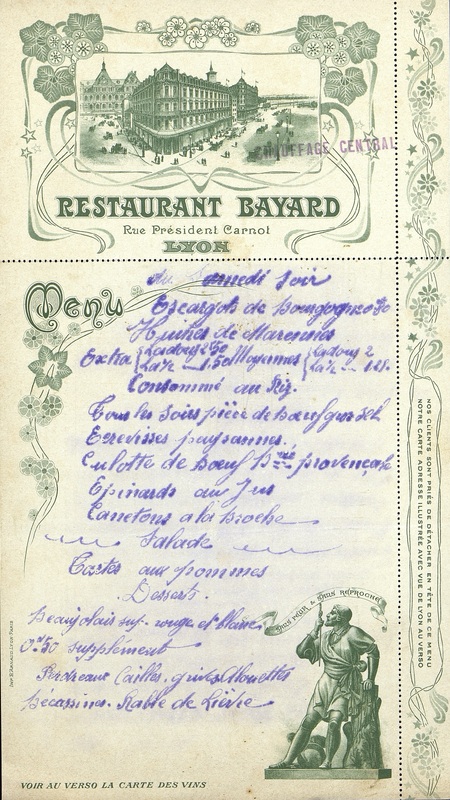 CHAUFFAGE CENTRAL
RESTAURANT BAYARD
Rue Président Carnot
LYON
Menu
du Samedi Soir
Escargots de Bourgogne
Huitres de Marennes
Extra La douz 2 50 Moyennes La douz 2
La ½ 1.50 La ½
Consommé au Riz.
Tous les soirs pièce de bœuf gros sel
Ecrevisses paysannes.
Culotte de Bœuf provençale
Epinards au Jus
Canetons à la broche
Salade
Tartes aux pommes
Desserts.
Beaujolais sup. rouge et blanc
0.50 supplement
Perdreaux Cailles, grives Alouettes
Bécassines. Rable de Lièvre
SANS PEUR & SANS REPROCHE
VOIR AU VERSO LA CARTE DES VINS
NOS CLIENTS SONT PRIÉS DE DÉTACHER EN TÊTE DE CE MENU
NOTRE CARTE ADRESSE ILLUSTRÉE AVEC VUE DE LYON AU VERSO